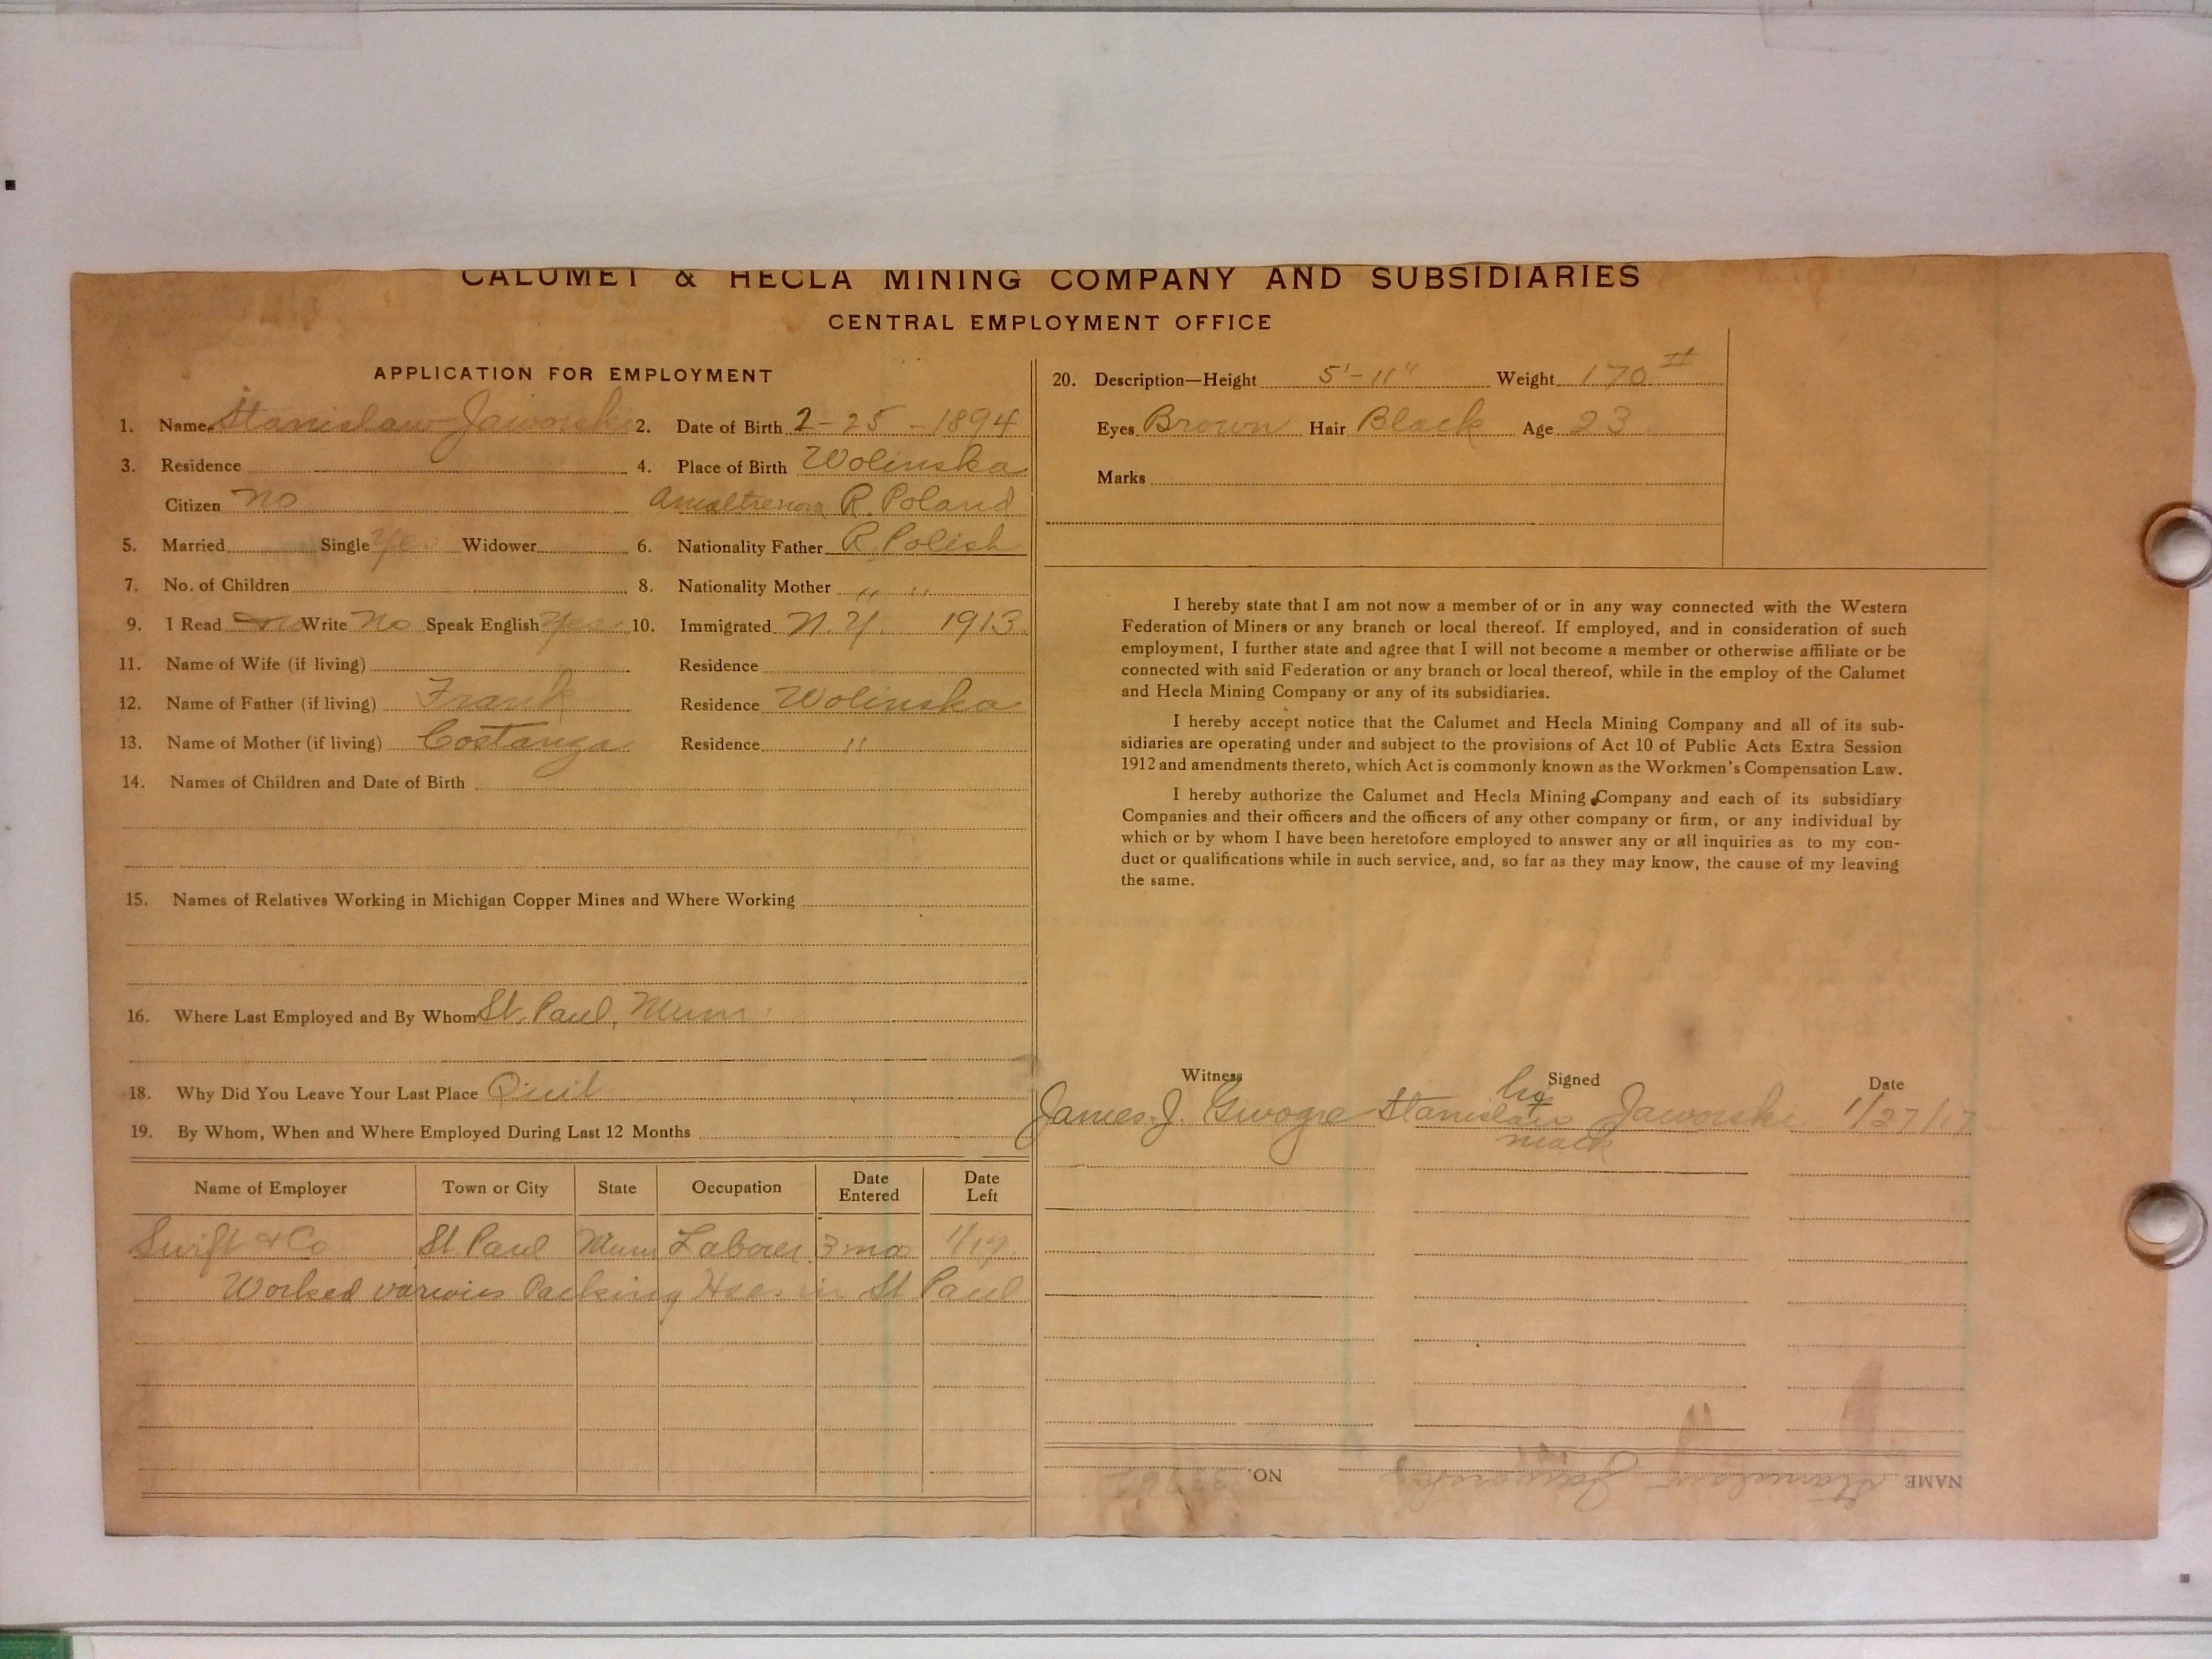 CALUMET & HECLA MINING COMPANY AND SUBSIDIARIES
CENTRAL EMPLOYMENT OFFICE
APPLICATION FOR EMPLOYMENT
1. Name Stanislaw Jaworski 2. Date of Birth 2-25-1894
3. Residence 4. Place of Birth Wolinska
Citizen no R. Poland
5. Married Single Yes Widower 6. Nationality Father R. Polish
7. No. of Children 8. Nationality Mother " "
9. I Read Write No Speak English Yes 10. Immigrated N.Y. 1913
11. Name of Wife (if living) Residence
12. Name of Father (if living) Frank Residence Wolinska
13. Name of Mother (if living) Costanza Residence "
14. Names of Children and Date of Birth
15. Names of Relatives Working in Michigan Copper Mines and Where Working
16. Where Last Employed and By Whom St. Paul, Minn
18. Why Did You Leave Your Last Place Quit
19. By Whom, When and Where Employed During Last 12 Months
Name of Employer Town or City State Occupation Date Entered Date Left
Swift & Co St Paul Minn Laborer 3 mo 1/17
Worked various Packing Hses in St Paul
20. Description—Height 5'-11" Weight 170 #
Eyes Brown Hair Black Age 23
Marks
I hereby state that I am not now a member of or in any way connected with the Western
Federation of Miners or any branch or local thereof. If employed, and in consideration of such
employment, I further state and agree that I will not become a member or otherwise affiliate or be
connected with said Federation or any branch or local thereof, while in the employ of the Calumet
and Hecla Mining Company or any of its subsidiaries.
I hereby accept notice that the Calumet and Hecla Mining Company and all of its sub-
sidiaries are operating under and subject to the provisions of Act 10 of Public Acts Extra Session
1912 and amendments thereto, which Act is commonly known as the Workmen's Compensation Law.
I hereby authorize the Calumet and Hecla Mining Company and each of its subsidiary
Companies and their officers and the officers of any other company or firm, or any individual by
which or by whom I have been heretofore employed to answer any or all inquiries as to my con-
duct or qualifications while in such service, and, so far as they may know, the cause of my leaving
the same.
Witness Signed Date
his
James J. Stanislaw x Jaworski 1/27/17
mark
NAME Stanislaw Jaworski NO.